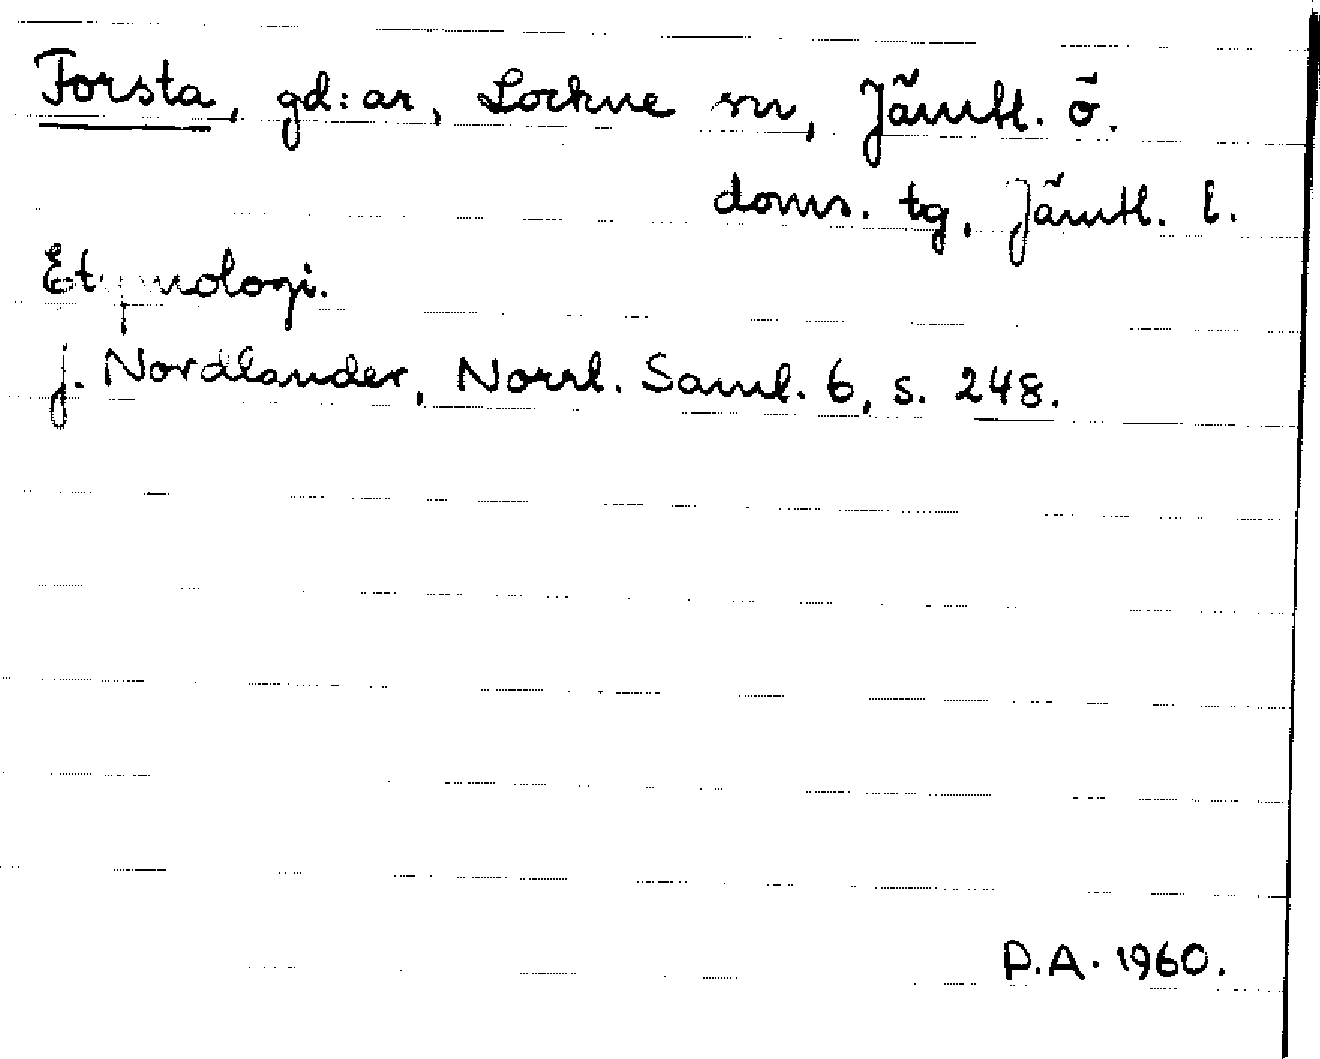 Forsta, gd:ar, Lockne sn, Jämtl. ö.
doms. tg, Jämtl. l.
Etymologi.
J. Nordlander, Norrl. Saml. 6, s. 248.
P.A. 1960.